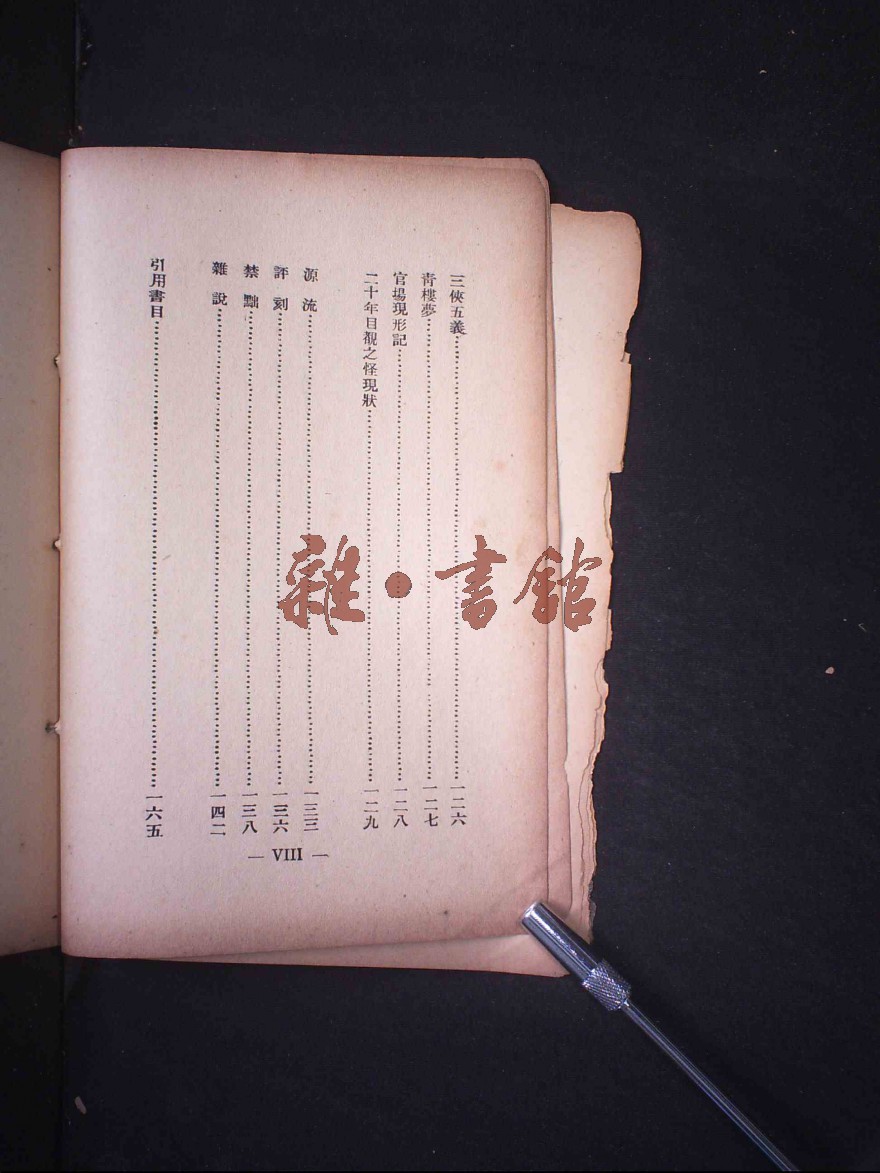 三俠五義…………一二六
青樓夢…………一二七
官場現形記…………一二八
二十年目覩之怪現狀…………一二九
源流…………一三三
評刻…………一三六
禁黜…………一三八
雜說…………一四二
引用書目…………一六五
— VIII —
雜·書館